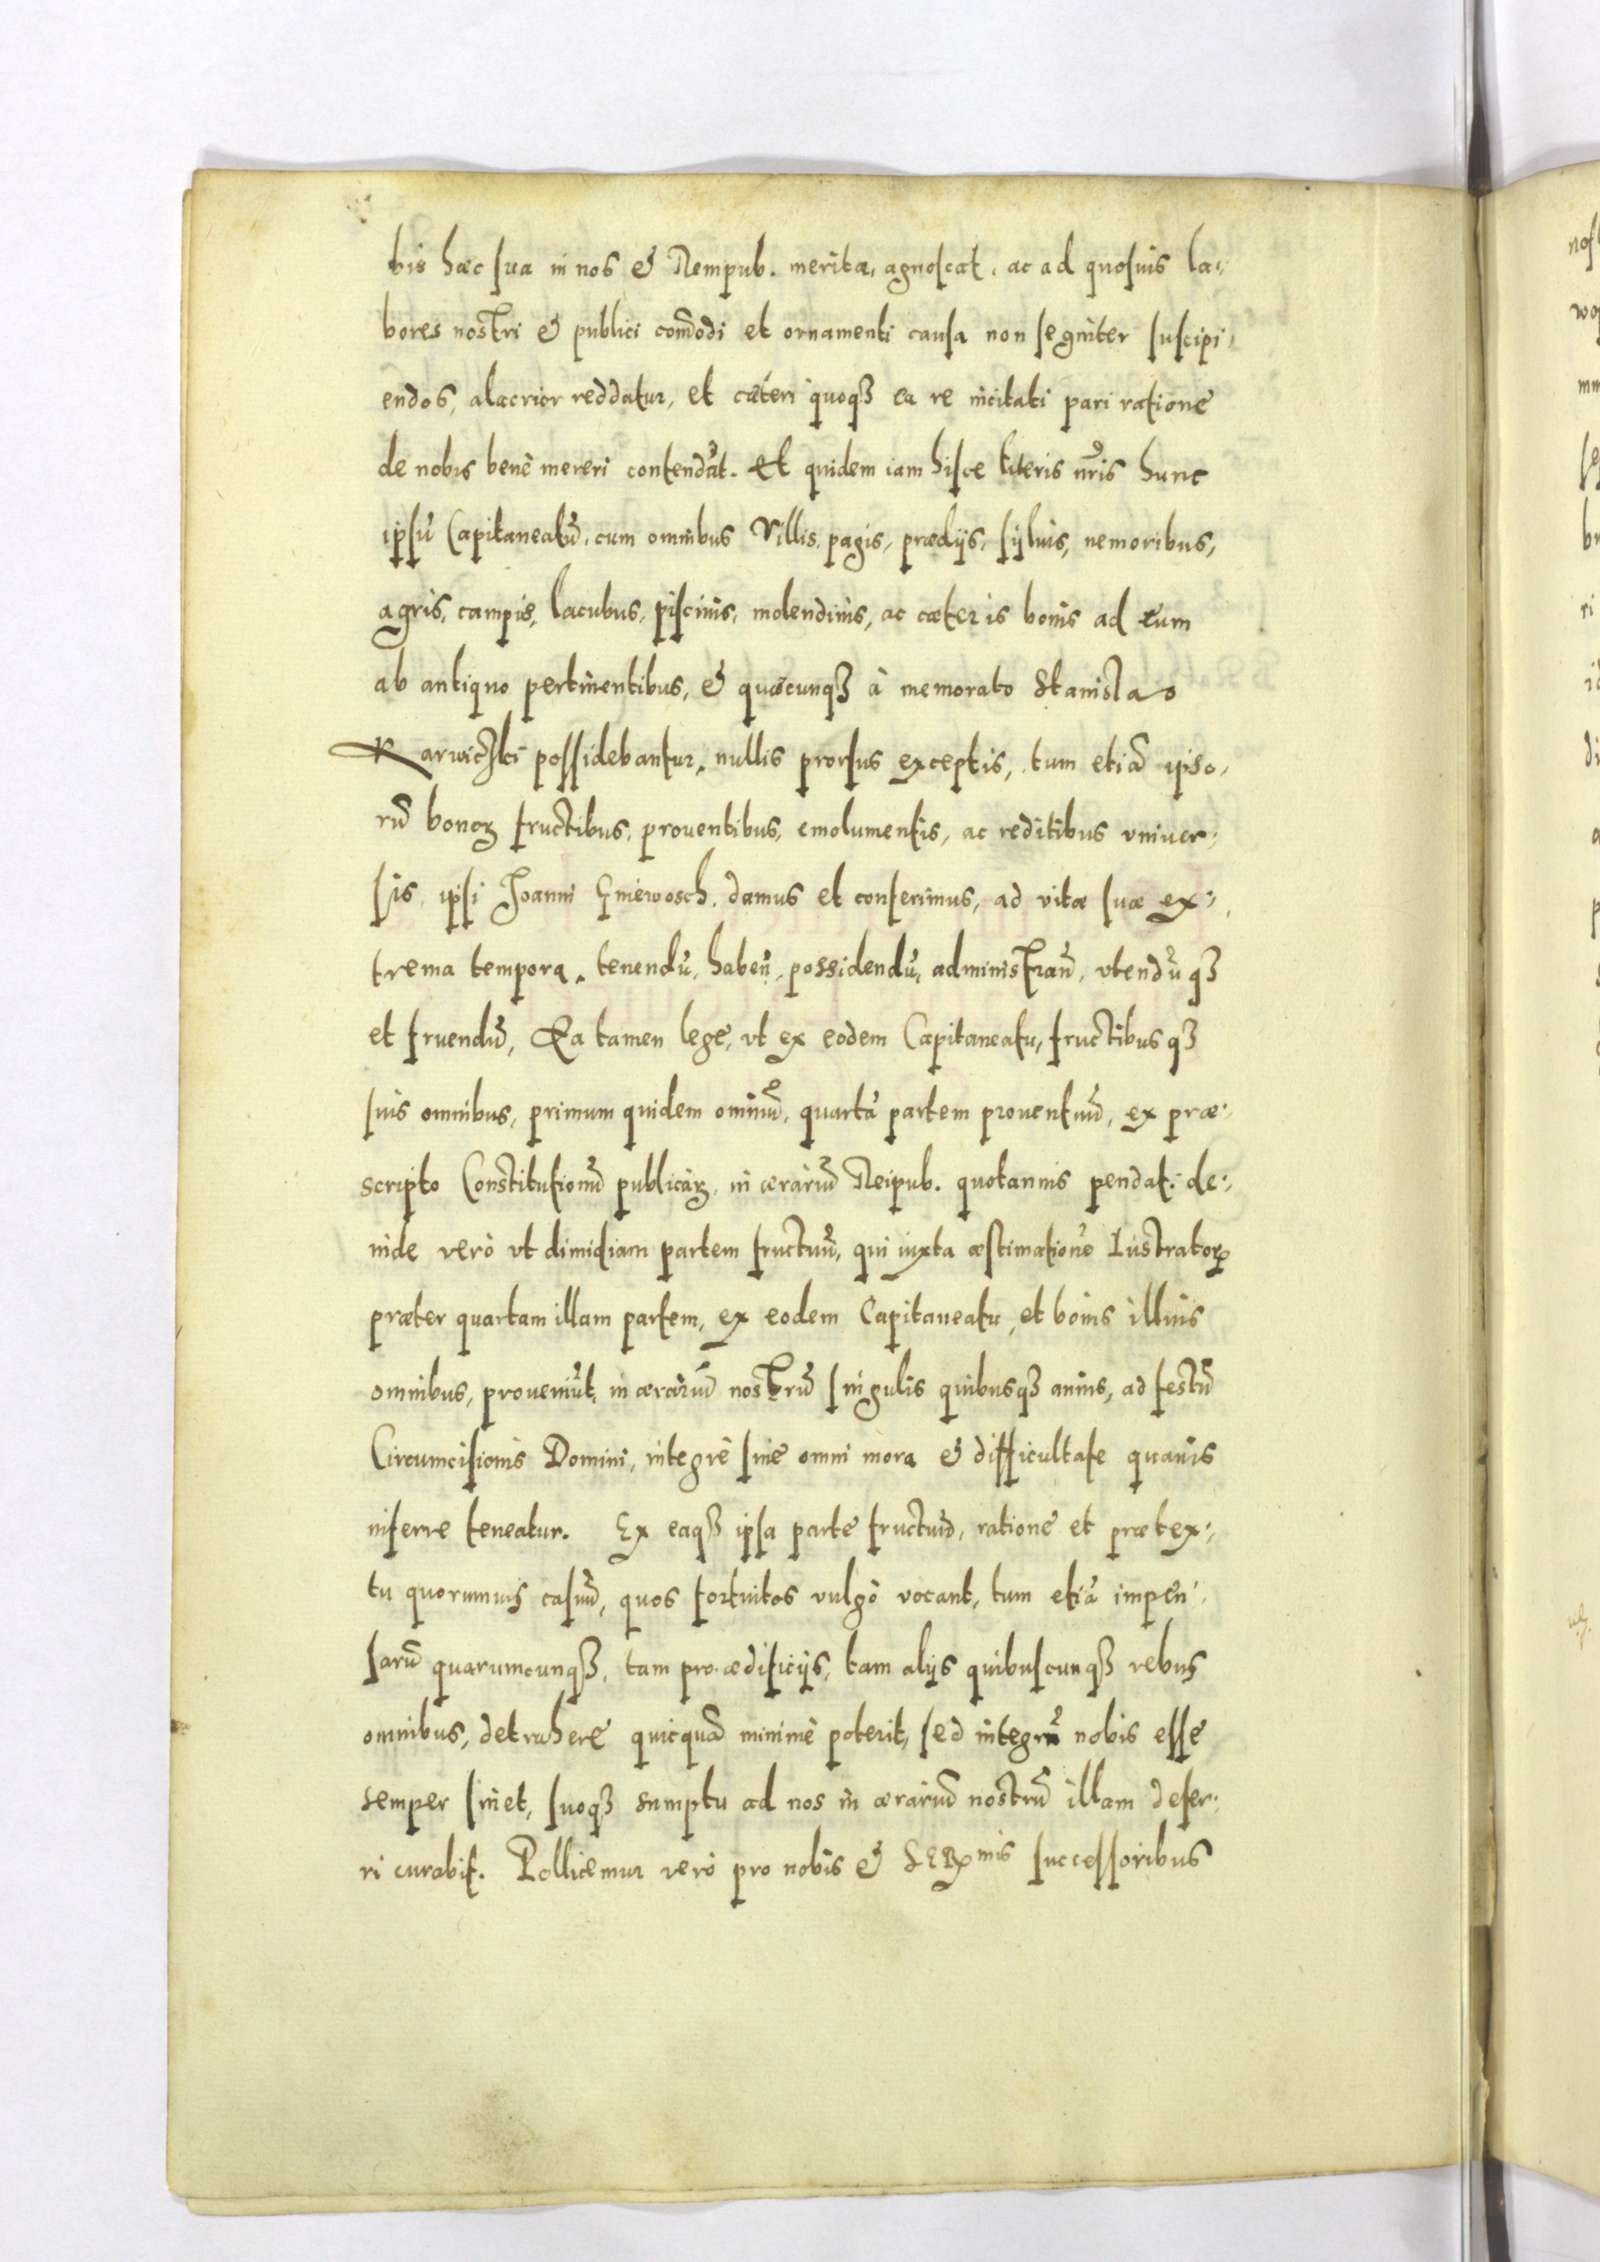 bis hæc sua in nos & Rempub. merita, agnoscat, ac ad quosuis la-
bores nostri & publici com̄odi et ornamenti causa non segniter suscipi-
endos, alacrior reddatur, et cæteri quoqȝ ea re incitati pari ratione
de nobis benè mereri contendāt. Et quidem iam hisce literis nr̄is hunc
ipsū Capitaneatū, cum omnibus Villis, pagis, prædijs, syluis, nemoribus,
agris, campis, lacubus, piscinis, molendinis, ac cæteris bonis ad eum
ab antiquo pertinentibus, & quæcunqȝ à memorato Stanislao
Karwiczki possidebantur, nullis prorsus exceptis, tum etiā ipso-
rū bonoꝝ fructibus, prouentibus, emolumentis, ac reditibus vniuer-
sis, ipsi Joanni Gniewosch, damus et conferimus, ad vitæ suæ ex-
trema tempora, tenendū, habeñ, possidendū, administrañ, vtendūqȝ
et fruendū, Ea tamen lege, vt ex eodem Capitaneatu, fructibusqȝ
suis omnibus, primum quidem omniū, quartā partem prouentuū, ex præ-
scripto Constitutionū publicaꝝ, in ærariū Reipub. quotannis pendat: de-
inde verò vt dimidiam partem fructuū, qui iuxta æstimationē Lustratoꝝ
præter quartam illam partem, ex eodem Capitaneatu, et bonis illius
omnibus, proueniūt, in ærariū nostrū singulis quibusqȝ annis, ad festū
Circumcisionis Domini, integrè sine omni mora & difficultate quauis
inferre teneatur. Ex eaqȝ ipsa parte fructuū, ratione et prætex-
tu quorumuis casuū, quos fortuitos vulgò vocant, tum etiā impen-
sarū quarumcunqȝ, tam pro ædificijs, tam alijs quibuscunqȝ rebus
omnibus, detrahere quicquā minimè poterit, sed integrā nobis esse
semper sinet, suoqȝ sumptu ad nos in ærariū nostrū illam defer-
ri curabit. Pollicemur verò pro nobis & SERmis successoribus